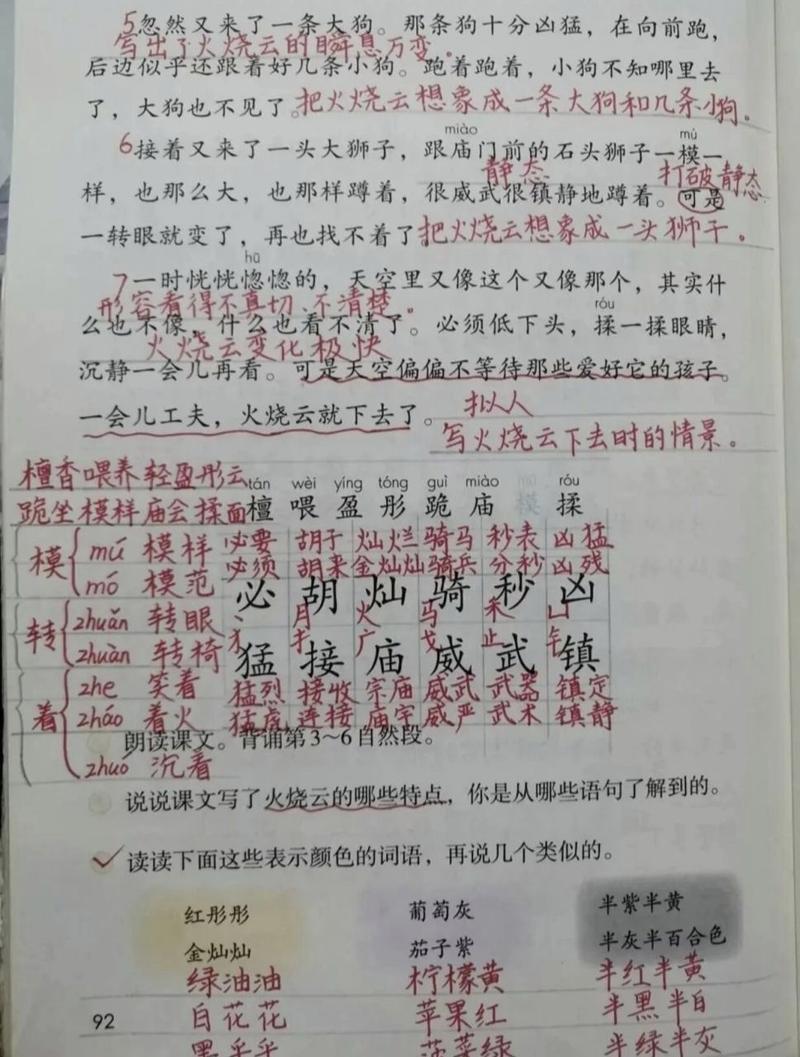 5忽然又来了一条大狗。那条狗十分凶猛，在向前跑，
写出了火烧云的瞬息万变。
后边似乎还跟着好几条小狗。跑着跑着，小狗不知哪里去
了，大狗也不见了。把火烧云想象成一条大狗和几条小狗。
miào mú
6接着又来了一头大狮子，跟庙门前的石头狮子一模一
静态 打破静态
样，也那么大，也那样蹲着，很威武很镇静地蹲着。可是
一转眼就变了，再也找不着了。把火烧云想象成一头狮子。
hū
7一时恍恍惚惚的，天空里又像这个又像那个，其实什
形容看得不真切、不清楚。
róu
么也不像，什么也看不清了。必须低下头，揉一揉眼睛，
火烧云变化极快
沉静一会儿再看。可是天空偏偏不等待那些爱好它的孩子。
一会儿工夫，火烧云就下去了。
拟人
写火烧云下去时的情景。
檀香喂养轻盈彤云
tán wèi yíng tóng guì miào mú róu
跪坐模样庙会揉面 檀 喂 盈 彤 跪 庙 模 揉
模 mú 模样 必要 胡子 灿烂 骑马 秒表 凶猛
mó 模范 必须 胡来 金灿灿 骑兵 分秒 凶残
必 胡 灿 骑 秒 凶
转 zhuǎn 转眼 月 火 马 禾 凵
zhuàn 转椅 犭 扌 广 戈 止 钅
猛 接 庙 威 武 镇
着 zhe 笑着 猛烈 接收 宗庙 威武 武器 镇定
zháo 着火 猛虎 连接 庙宇 威严 武术 镇静
朗读课文。背诵第3~6自然段。
zhuó 沉着
说说课文写了火烧云的哪些特点，你是从哪些语句了解到的。
读读下面这些表示颜色的词语，再说几个类似的。
红彤彤 葡萄灰 半紫半黄
金灿灿 茄子紫 半灰半百合色
绿油油 柠檬黄 半红半黄
92 白花花 苹果红 半黑半白
黑乎乎 菠菜绿 半绿半灰